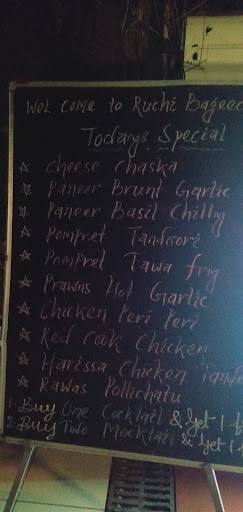 Wel come to Ruchi Bagee
Todays Special
☆ Cheese Chaska
☆ Paneer Brunt Garlic
☆ Paneer Basil Chilly
☆ Pompret Tandoori
☆ Pompret Tawa fry
☆ Prawns Hot Garlic
☆ Chicken Peri Peri
☆ Red Cook Chicken
☆ Harissa Chicken Tand
☆ Rawas Pollichatu
1 Buy One Cocktail & Get 1 f
2 Buy Two Mocktail & Get 1 f